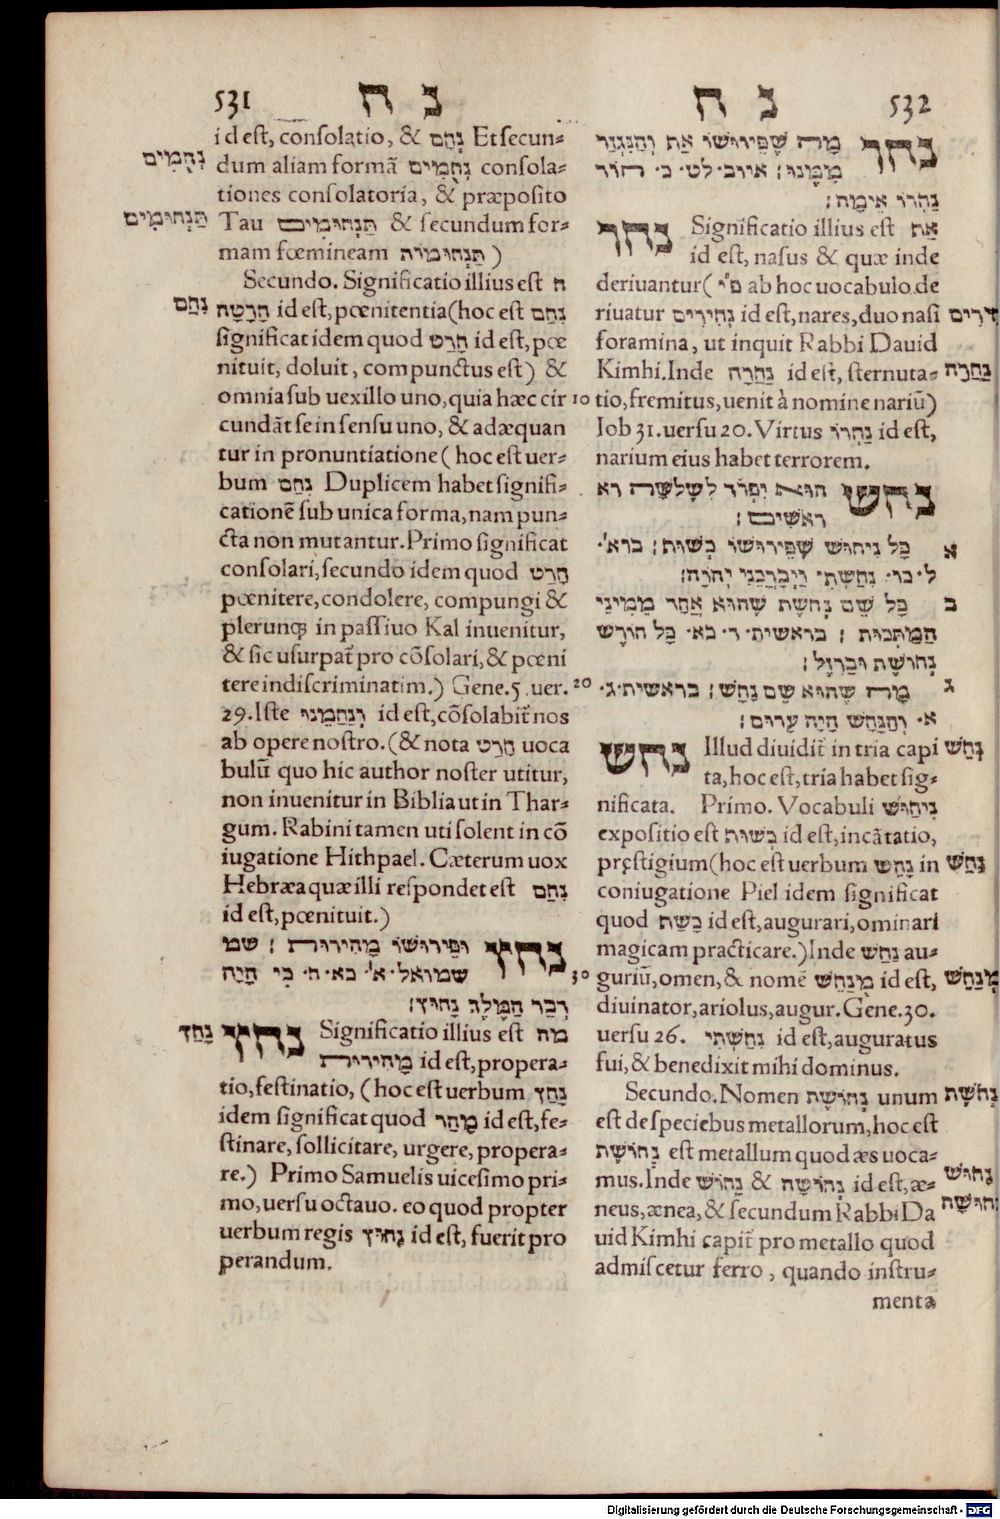 531 נ ח
id est, consolatio, & נֹחַם Et secun-
dum aliam formã נִחֻמִים consola-
tiones consolatoria, & præposito
Tau תַּנְחוּמִים & secundum for-
mam fœmineam תַּנְחוּמוֹת )
Secundo. Significatio illius est ח
חֲרָטָה id est, pœnitentia (hoc est נִחַם
significat idem quod חָרַט id est, pœ
nituit, doluit, compunctus est) &
omnia sub uexillo uno, quia hæc cir
cundãt se in sensu uno, & adæquan
tur in pronuntiatione (hoc est uer-
bum נִחַם Duplicem habet signifi-
cationẽ sub unica forma, nam pun-
cta non mutantur. Primo significat
consolari, secundo idem quod חָרַט
pœnitere, condolere, compungi &
plerunq; in passiuo Kal inuenitur,
& sic usurpat̃ pro cõsolari, & pœni
tere indiscriminatim.) Gene. 5. uer.
29. Iste יְנַחֲמֵנוּ id est, cõsolabit̃ nos
ab opere nostro. (& nota חָרַט uoca
bulũ quo hic author noster utitur,
non inuenitur in Biblia ut in Thar-
gum. Rabini tamen uti solent in cõ
iugatione Hithpael. Cæterum uox
Hebræa quæ illi respondet est נִחַם
id est, pœnituit.)
נחץ ופֵירוּשׁוֹ מְהִירוּת ; שמ
שמואל · א' · כא · ח · כִּי הָיָה
דְבַר הַמֶּלֶךְ נָחוּץ׃
נחץ Significatio illius est מה
מְהִירוּת id est, propera-
tio, festinatio, (hoc est uerbum נָחַץ
idem significat quod מָהַר id est, fe-
stinare, sollicitare, urgere, propera-
re.) Primo Samuelis uicesimo pri-
mo, uersu octauo. eo quod propter
uerbum regis נָחוּץ id est, fuerit pro
perandum.
נִחֻמִים
תַּנְחוּמִים
נִחַם
נָחַץ
10
20
30
נ ח 532
נחר מָה שֶׁפֵּירוּשׁוֹ אַף וְהַנִּגְזָר
מִמֶּנּוּ ; איוב · לט · כ · הוֹד
נַחְרוֹ אֵימָה ;
נחר Significatio illius est אַף
id est, nasus & quæ inde
deriuantur ( פי' ab hoc uocabulo de
riuatur נְחִירִים id est, nares, duo nasi
foramina, ut inquit Rabbi Dauid
Kimhi. Inde נַחֲרָה id est, sternuta-
tio, fremitus, uenit à nomine nariũ)
Iob 31. uersu 20. Virtus נַחְרוֹ id est,
narium eius habet terrorem.
נחש הוּא יִפָּרֵד לִשְׁלֹשָׁה רא
ראשִׁים ;
א כָּל נִיחוּשׁ שֶׁפֵּירוּשׁוֹ כִּשּׁוּף ; ברא' ·
ל · כו · נִחַשְׁתִּי · וַיְבָרֲכֵנִי יְהוָֹה ;
ב כָּל שֵׁם נְחֹשֶׁת שֶׁהוּא אֶחָד מִמִּינֵי
הַמַּתָּכוֹת ; בראשית · ד · כא · כָּל חוֹרֵשׁ
נְחוֹשֶׁת וּבַרְזֶל ;
ג מָה שֶׁהוּא שֵׁם נָחָשׁ ; בראשית · ג ·
א · וְהַנָּחָשׁ הָיָה עָרוּם ;
נחש Illud diuidit̃ in tria capi
ta, hoc est, tria habet sig-
nificata. Primo. Vocabuli נִיחוּשׁ
expositio est כִּשּׁוּף id est, incãtatio,
pręstigium (hoc est uerbum נִחֵשׁ in
coniugatione Piel idem significat
quod כִּשֵּׁף id est, augurari, ominari
magicam practicare.) Inde נַחַשׁ au-
guriũ, omen, & nomẽ מְנַחֵשׁ id est,
diuinator, ariolus, augur. Gene. 30.
uersu 26. נִחַשְׁתִּי id est, auguratus
fui, & benedixit mihi dominus.
Secundo. Nomen נְחוֹשֶׁת unum
est de speciebus metallorum, hoc est
נְחוֹשֶׁת est metallum quod æs uoca-
mus. Inde נָחוּשׁ & נְחוּשָׁה id est, æ-
neus, ænea, & secundum Rabbi Da
uid Kimhi capit̃ pro metallo quod
admiscetur ferro, quando instru-
menta
נַחֲרָה
נָחָשׁ
נִחֵשׁ
מְנַחֵשׁ
נְחֹשֶׁת
נָחוּשׁ
Digitalisierung gefördert durch die Deutsche Forschungsgemeinschaft - DFG